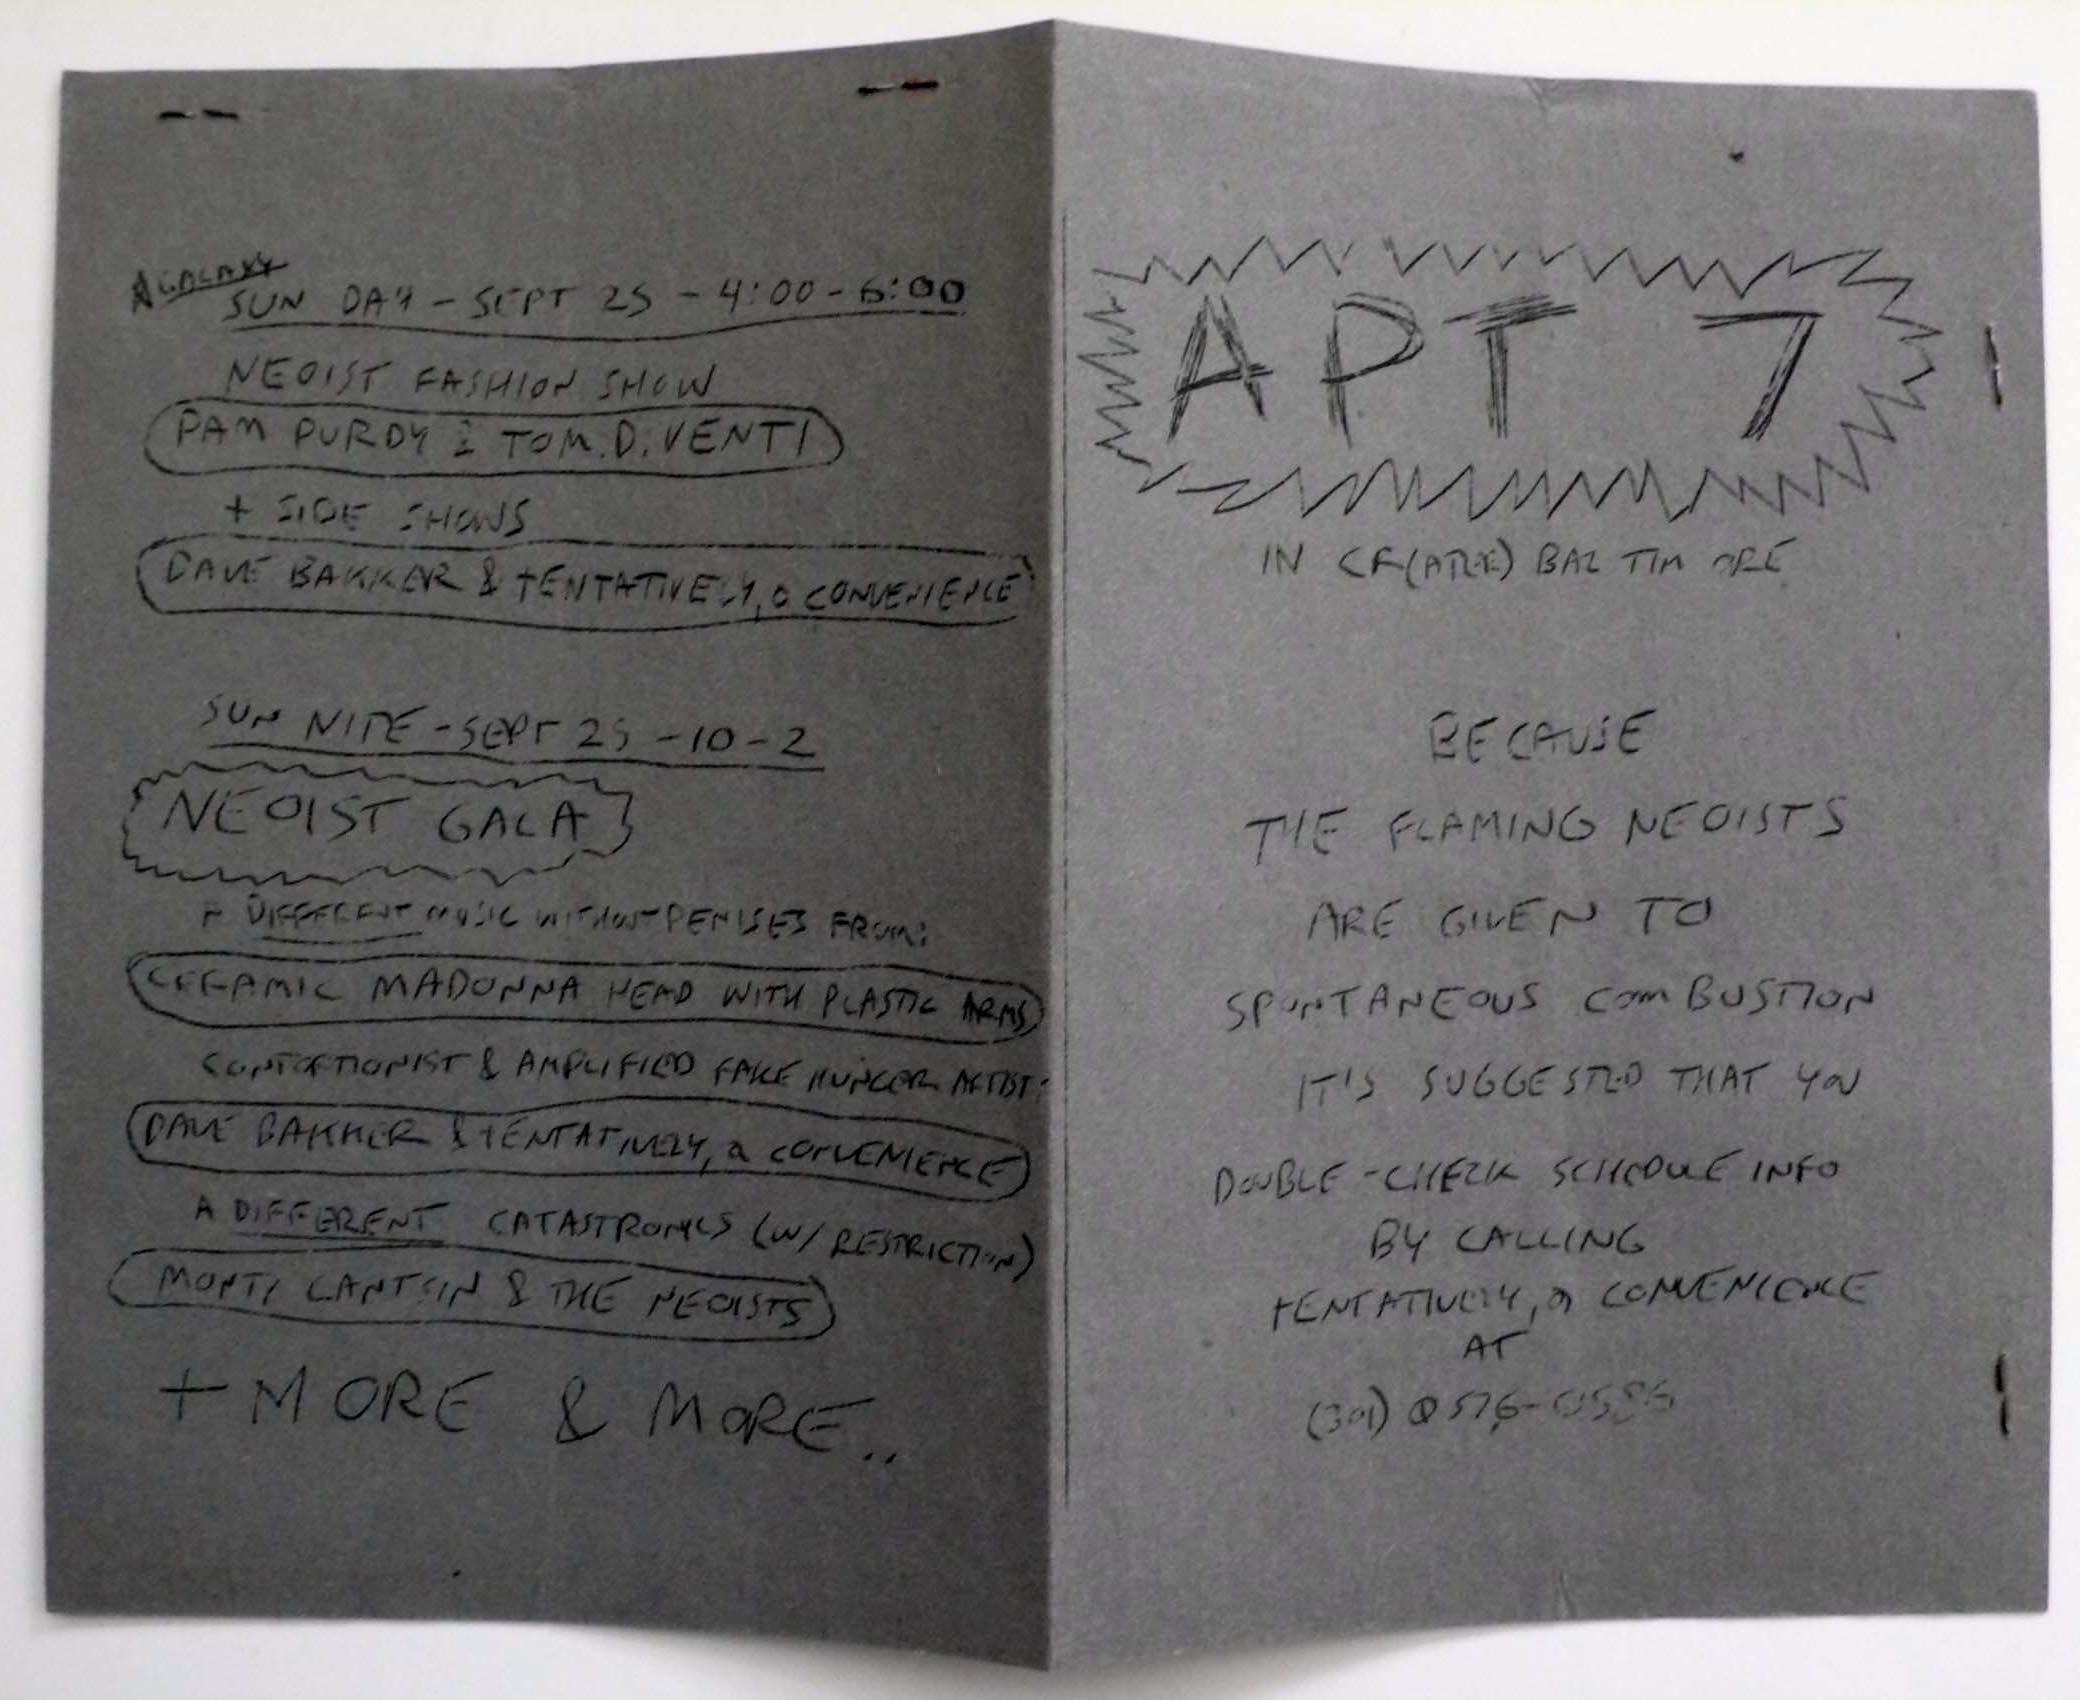 SUN DAY - SEPT 25 - 4:00 - 6:00
NEOIST FASHION SHOW
PAM PURDY & TOM. D. VENTI
+ SIDE SHOWS
DAVE BAKKER & tENTATIVELY, a CONVENIENCE
SUN NITE - SEPT 25 - 10 - 2
NEOIST GALA
A DIFFERENT MUSIC WITHOUT PENISES FROM:
CERAMIC MADONNA HEAD WITH PLASTIC ARMS
CONTORTIONIST & AMPLIFIED FAKE HUNGER ARTIST:
DAVE BAKKER & tENTATIVELY, a CONVENIENCE
A DIFFERENT CATASTRONICS (W/ RESTRICTION)
MONTY CANTSIN & THE NEOISTS
+ MORE & MORE..
APT 7
IN BAL TIM ORE
BECAUSE
THE FLAMING NEOISTS
ARE GIVEN TO
SPONTANEOUS COMBUSTION
IT'S SUGGESTED THAT YOU
DOUBLE-CHECK SCHEDULE INFO
BY CALLING
tENTATIVELY, a CONVENIENCE
AT
(301)